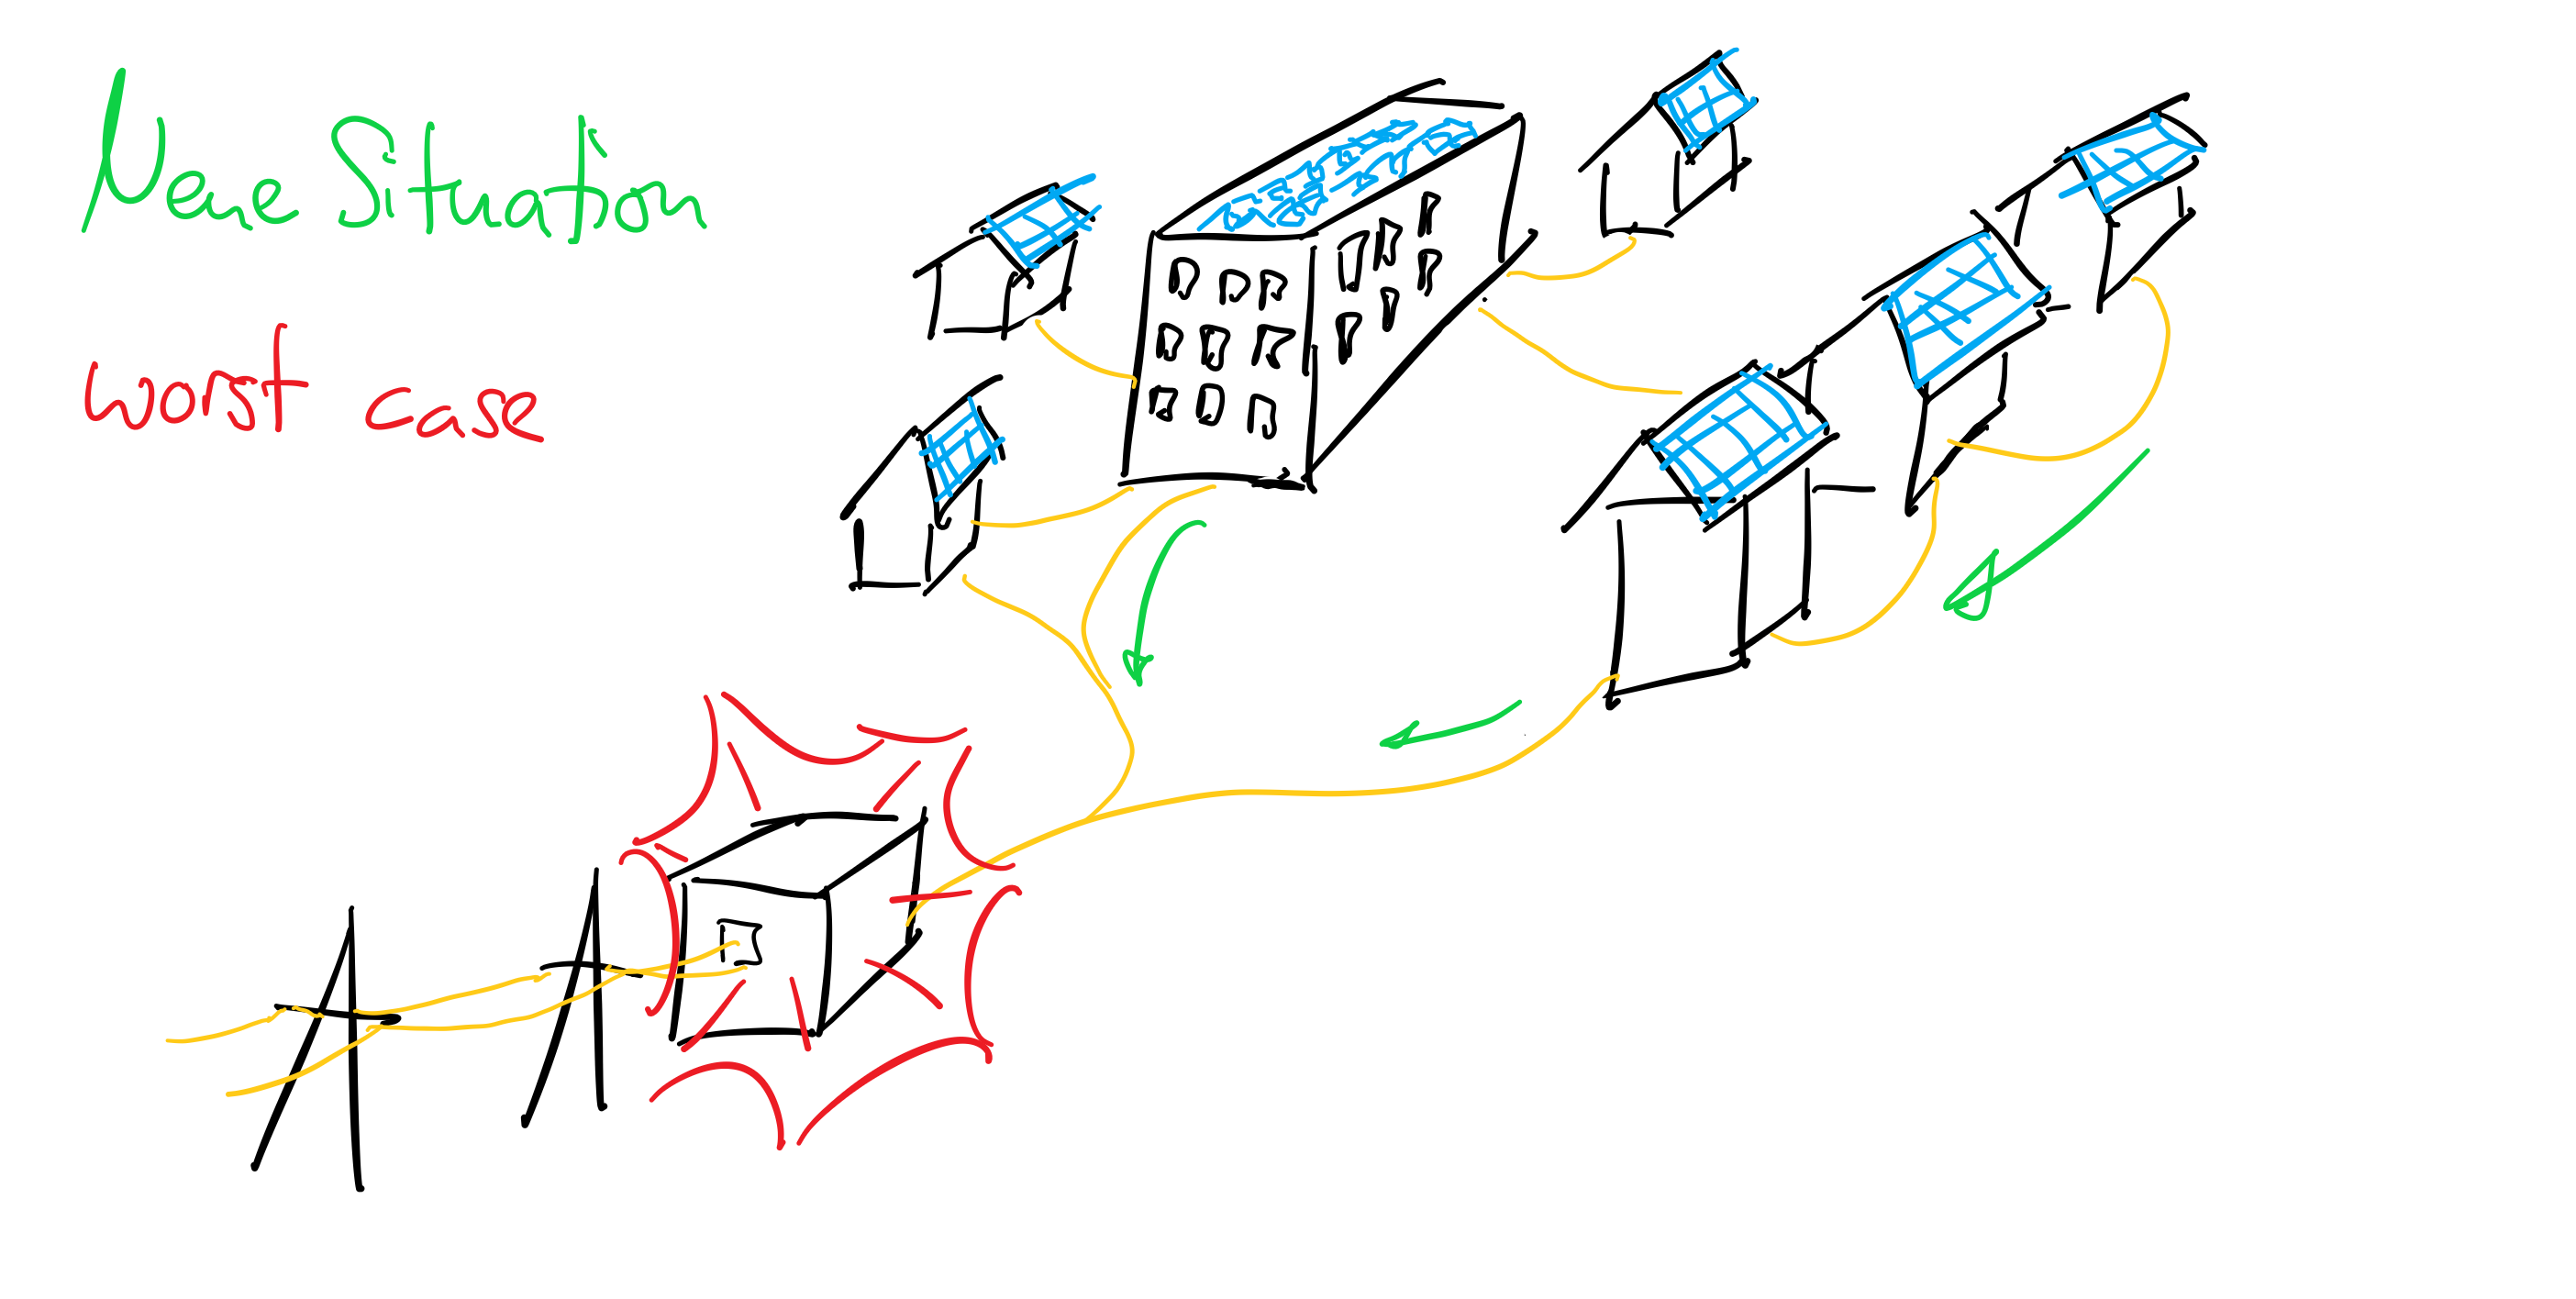 Neue Situation
worst case